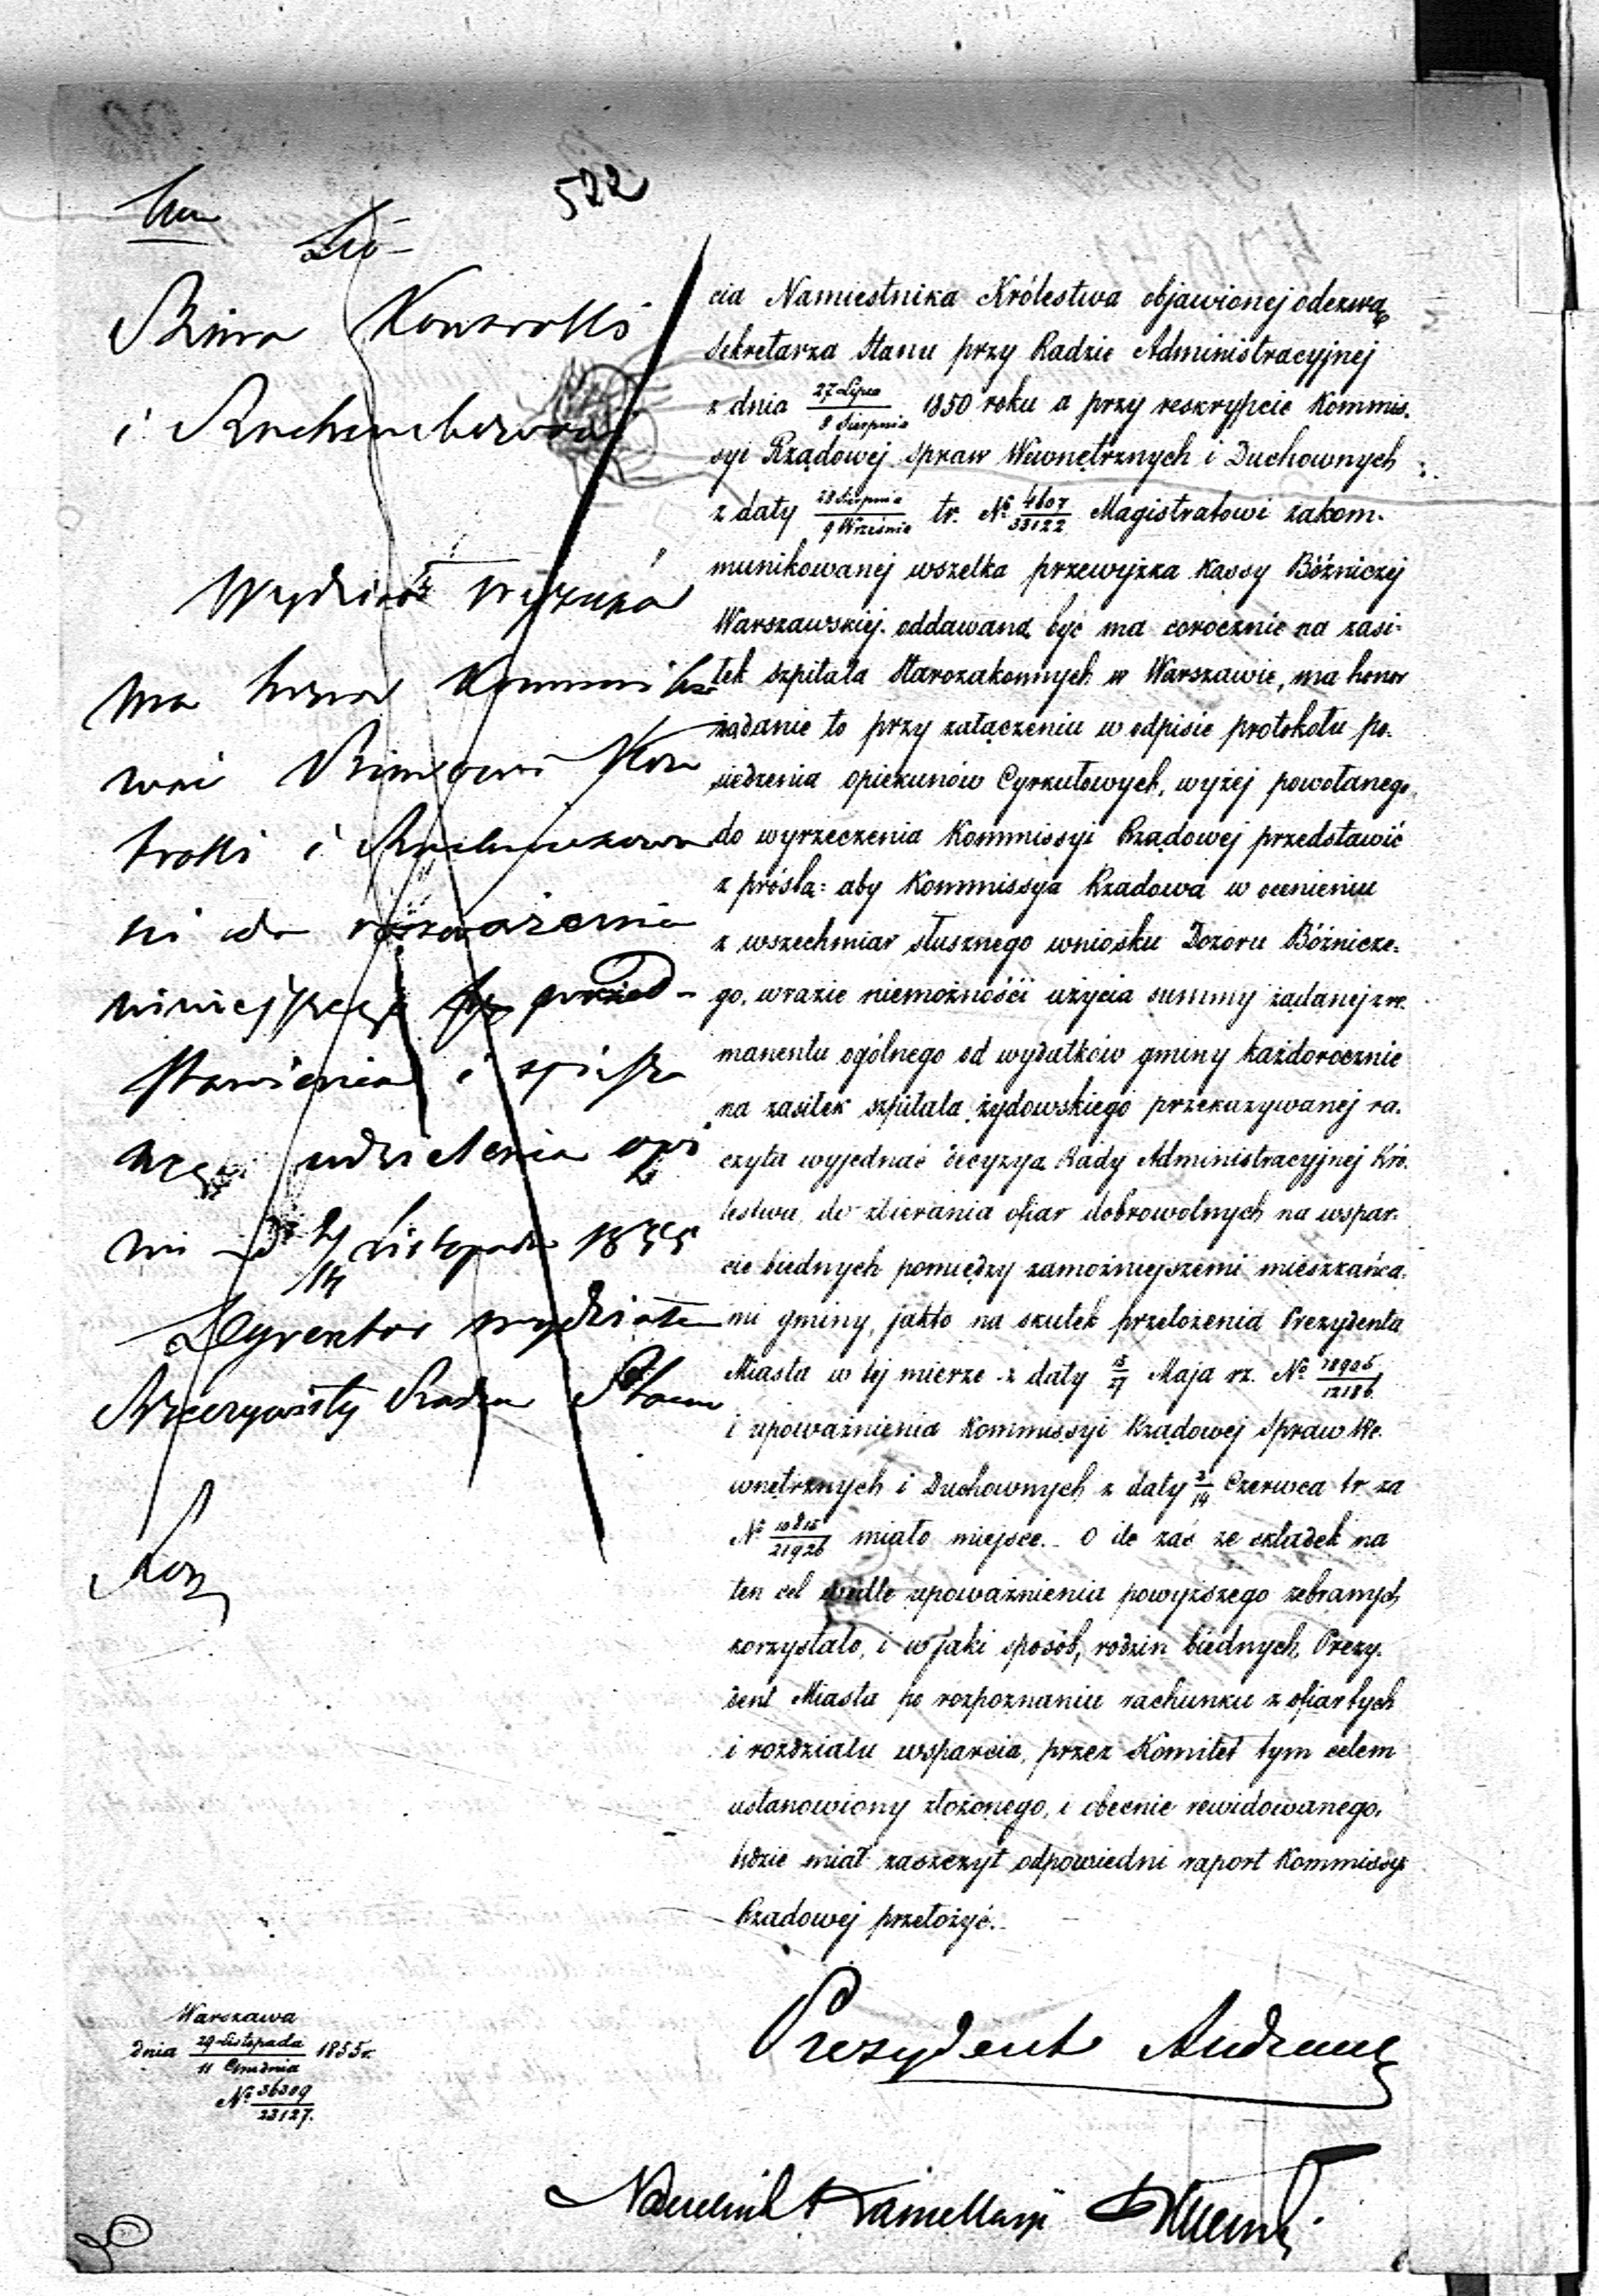 522
Biura Kontrolli
i Rachunkowości
Wydział
ma honor Kommuniko
wać Biurowi Kon
trolli i Rachunkowo
ści do rozważenia
niniejszego przed-
stawienia i
udzielenia opi
nii d. 2/14 Listopada 1855
Dyrektor Wydziału
Rzeczywisty Radca Stanu
cia Namiestnika Królestwa objawionej odezwą
Sekretarza Stanu przy Radzie Administracyjnej
z dnia 27 Lipca/8 Sierpnia 1850 roku a przy reskrypcie Kommis.
syi Rządowej Spraw Wewnętrznych i Duchownych
z daty 28 Sierpnia/9 Września tr. № 4607/33122 Magistratowi zakom.
munikowanej wszelka przewyżka Kassy Bóźniczej
Warszawskiej oddawaną być ma corocznie na zasi-
łek szpitala Starozakonnych w Warszawie, ma honor
żądanie to przy załączeniu w odpisie protokołu po.
siedzenia Opiekunów Cyrkułowych, wyżej powołanego
do wyrzeczenia Kommissyi Rządowej przedstawić
z prośbą: aby Kommissya Rządowa w ocenieniu
z wszechmiar słusznego wniosku Dozoru Bóźnicze-
go, wrazie niemożności użycia summy żądanej z re.
manentu ogólnego od wydatków gminy każdorocznie
na zasiłek szpitala żydowskiego przekazywanej ra.
czyła wyjednać decyzyą Rady Administracyjnej Kró.
lestwa, do zbierania ofiar dobrowolnych na wspar.
cie biednych pomiędzy zamożniejszemi mieszkańca.
mi gminy, jakto na skutek przełożenia Prezydenta
Miasta w tej mierze z daty Maja rz. № 
i upoważnienia Kommissyi Rządowej Spraw We.
wnętrznych i Duchownych z daty 2/14 Czerwca tr. za
№ miało miejsce. O ile zaś ze składek na
ten cel wedle upoważnienia powyższego zebranych
korzystało, i w jaki sposób, rodzin biednych, Prezy.
dent Miasta po rozpoznaniu rachunku z ofiar tych
i rozdziału wsparcia, przez Komitet tym celem
ustanowiony złożonego, i obecnie rewidowanego,
będzie miał zaszczyt odpowiedni raport Kommissyi
Rządowej przełożyć.
Prezydent Andrault
Naczelnik Kancellaryi
Warszawa
dnia 29 Listopada/11 Grudnia 1855 r.
№ 36309/23127.